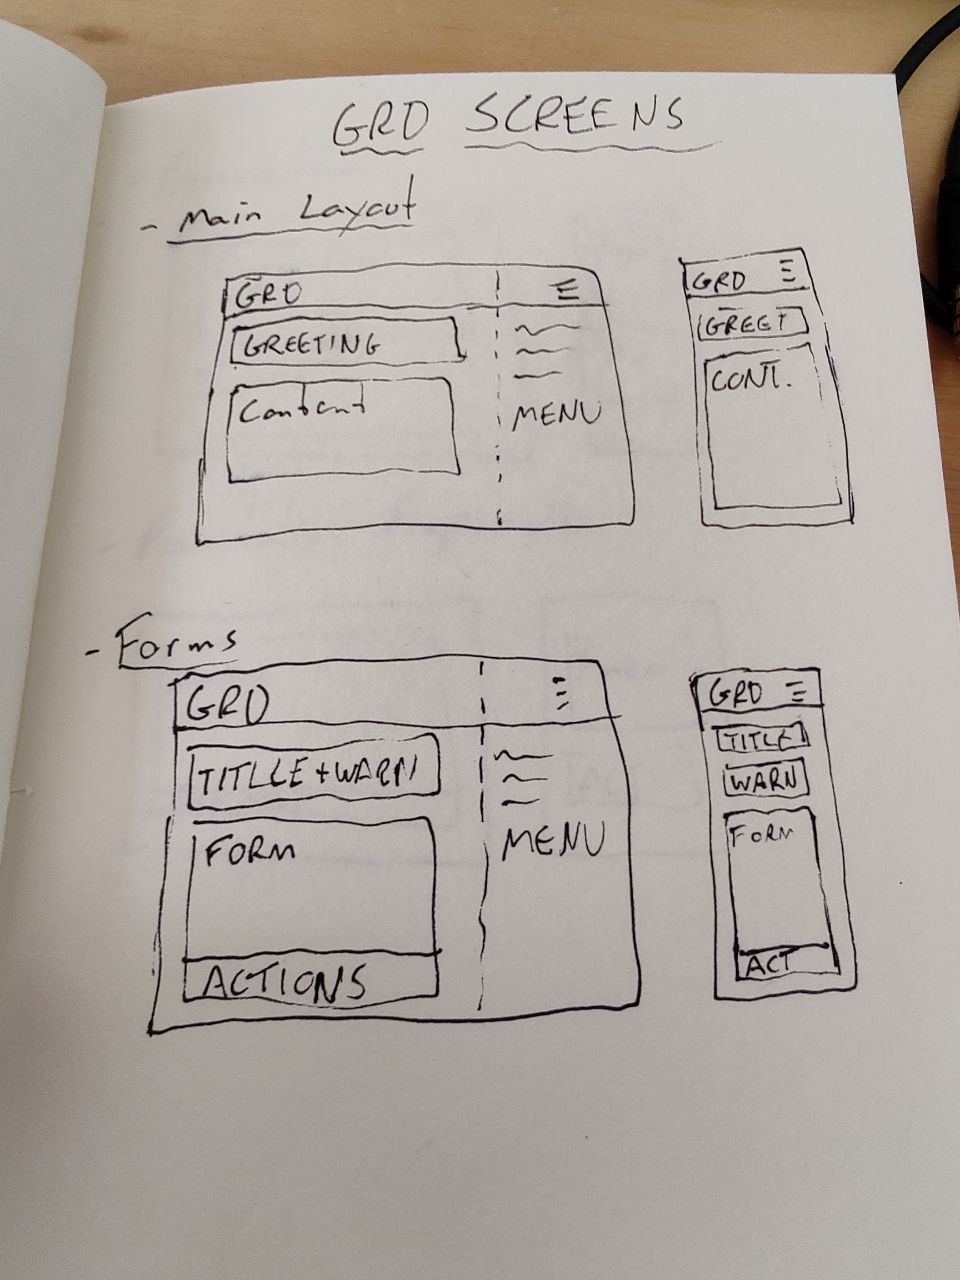 GRD SCREENS
- Main Layout
GRD
GREETING
Content
MENU
GRD
GREET
CONT.
- Forms
GRD
TITLLE + WARN
FORM
ACTIONS
MENU
GRD
TITLE
WARN
FORM
ACT